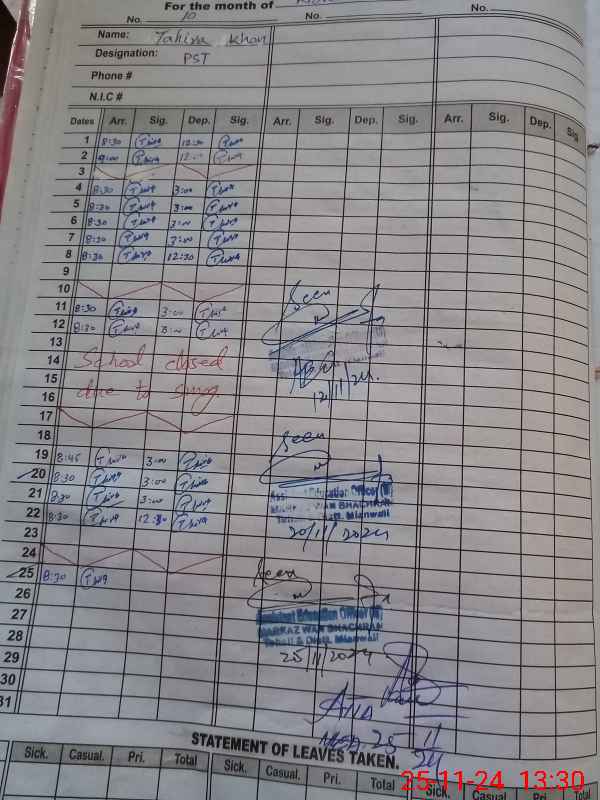 For the month of
No. 10 No. No.
Name: Tahira Khan
Designation: PST
Phone #
N.I.C #
Dates Arr. Sig. Dep. Sig. Arr. Sig. Dep. Sig. Arr. Sig. Dep. Sig.
1 8:30 12:30
2 9:00
3
4 8:30 3:00
5 8:30 3:00
6 8:30 3:00
7 8:30 3:00
8 8:30 12:30
9
10
11 8:30 3:00
12 8:30 3:00
Seen
12/11/24.
13
14 School closed
15 due to smog.
16
17
18
19 8:45 3:00
20 8:30 3:00
21 8:30 3:00
22 8:30 12:30
23
Seen
Assistant Education Officer (W)
MARKAZ WAN BHACHRAN
Tehsil & Distt. Mianwali
20/11/2024
24
25 8:30
26
27
28
29
30
31
Seen
Assistant Education Officer (W)
MARKAZ WAN BHACHRAN
Tehsil & Distt. Mianwali
25/11/2024
25 11 24
STATEMENT OF LEAVES TAKEN.
Sick. Casual. Pri. Total Sick. Casual. Pri. Total Sick. Casual. Pri. Total
25-11-24 13:30